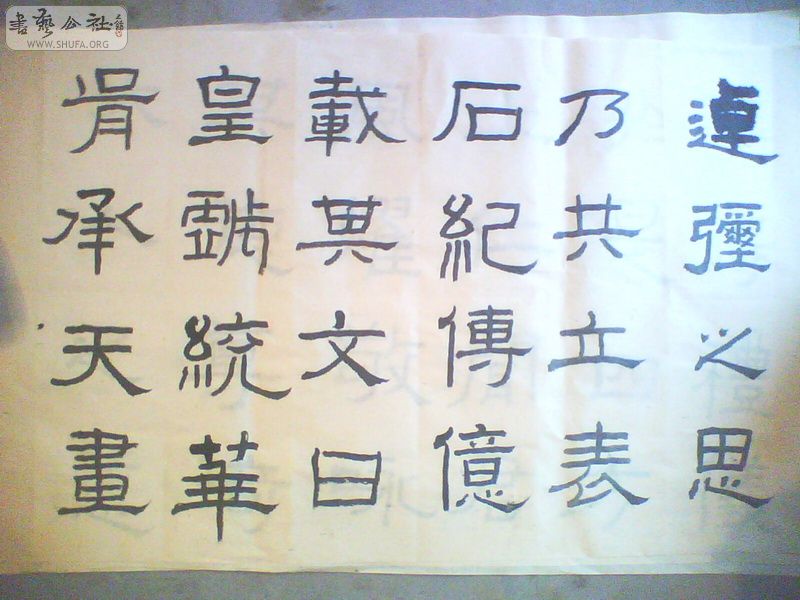 逴彌之思
乃共立表
石紀傳億
載其文曰
皇戲統華
胥承天畫
書藝公社
WWW.SHUFA.ORG